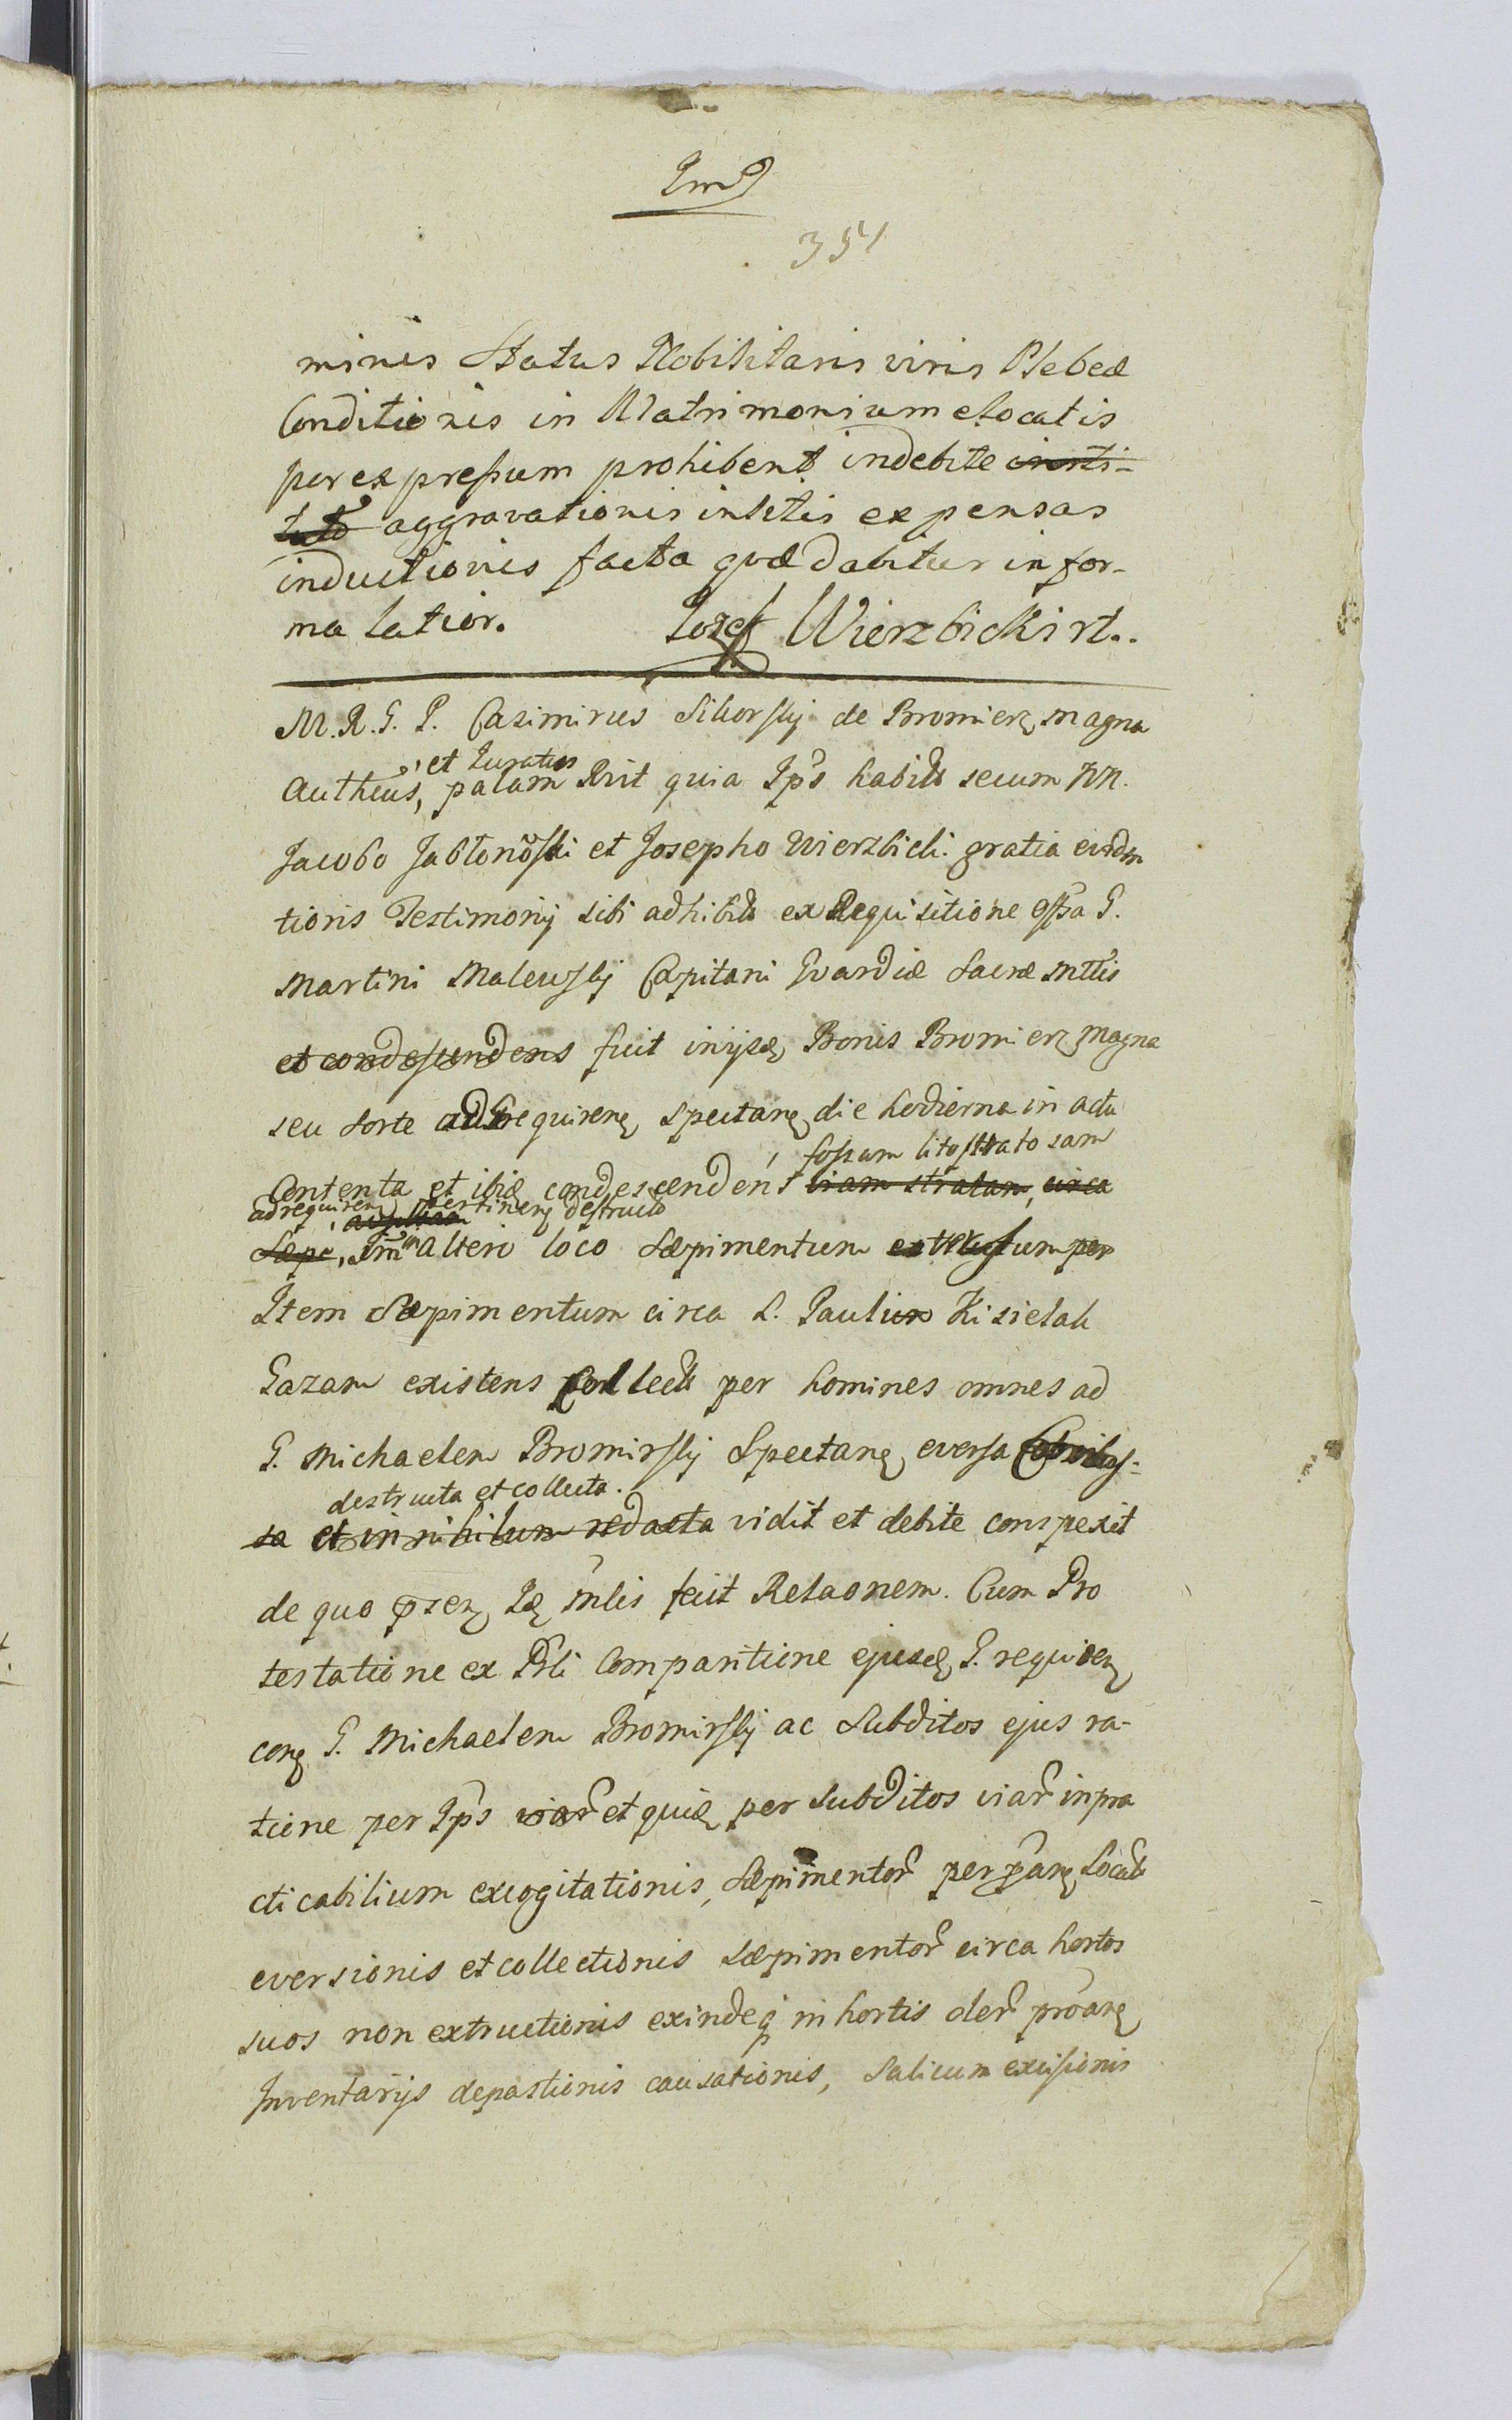 351
minis Status Nobilitaris viris Plebeæ
Conditionis in Matrimonium elocatis
per expressum prohibent indebite insti-
tuto aggravationis in litis expensas
inductionis facta quæ dabitur in for-
ma latior. Jozef Wierzbicki rt.
M. R. G. P. Casimirus Sikorskj de Bromierz magna
et Juratus
Autheūs, palam Rvit quia Ips habitis secum NN.
Jacobo Jabłonoski et Josepho Wierzbicki gratia evide
tionis Testimonij sibi adhibitis ex Requisitione G.
Martini Malewskj Capitani Gvardiæ Sacræ Mttis
et condescendens fuit in ijsd Bonis Bromierz Magna
seu sorte ad requiren spectan die hodierna in actu
fossam litostrato sam
Contenta et ibid condescendens viam stratam, circa
adrequiren pertinen destructo
Sæpe, in altero loco Sæpimentum extrusum per
Item Sæpimentum circa L. Pauli Kisielak
Gazam existens Collect per homines omnes ad
G. Michaelem Bromirskj Spectan eversa
destructa et collecta.
sa et in nihilum redacta vidit et debite conspexit
de quo pszen Id mlis fecit Relaonem. Cum Pro
testatione ex Prli Comparitione ejusd G. requiren
con G. Michaelem Bromirskj ac Subditos ejus ra-
tione per Ips viar et quid per Subditos viar inpra
cticabilium excogitationis, Sæpimentor per Locatis
eversionis et collectionis Sæpimentor circa hortos
suos non extructionis exindeq in hortis oler proan
Inventarijs depastionis causationis, Salicum excisionis